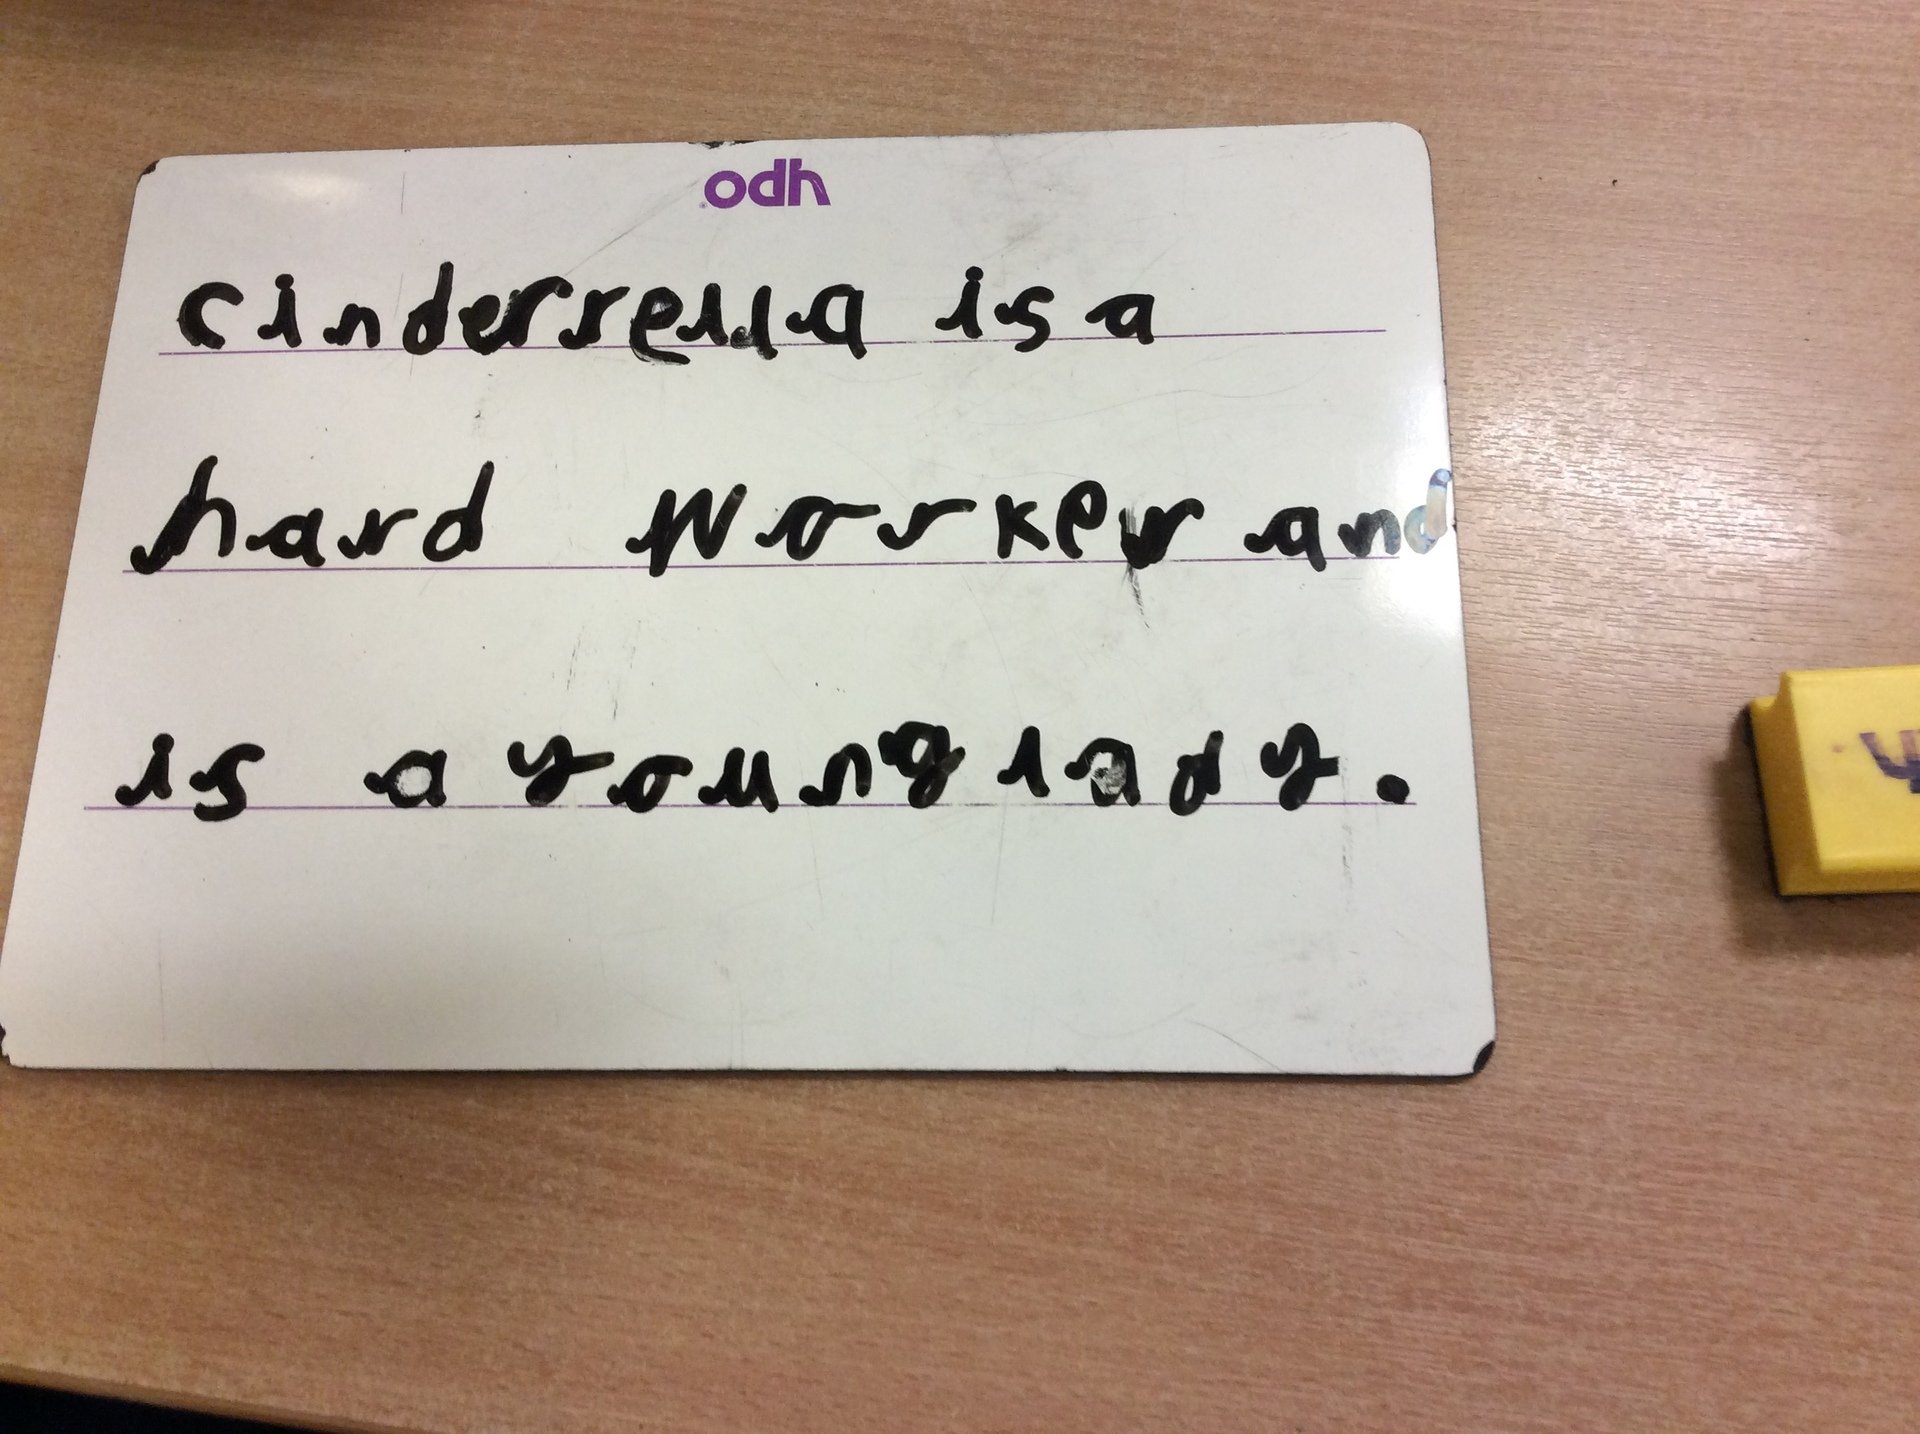 odh
cinderrella is a
hard worker and
is a young lady.